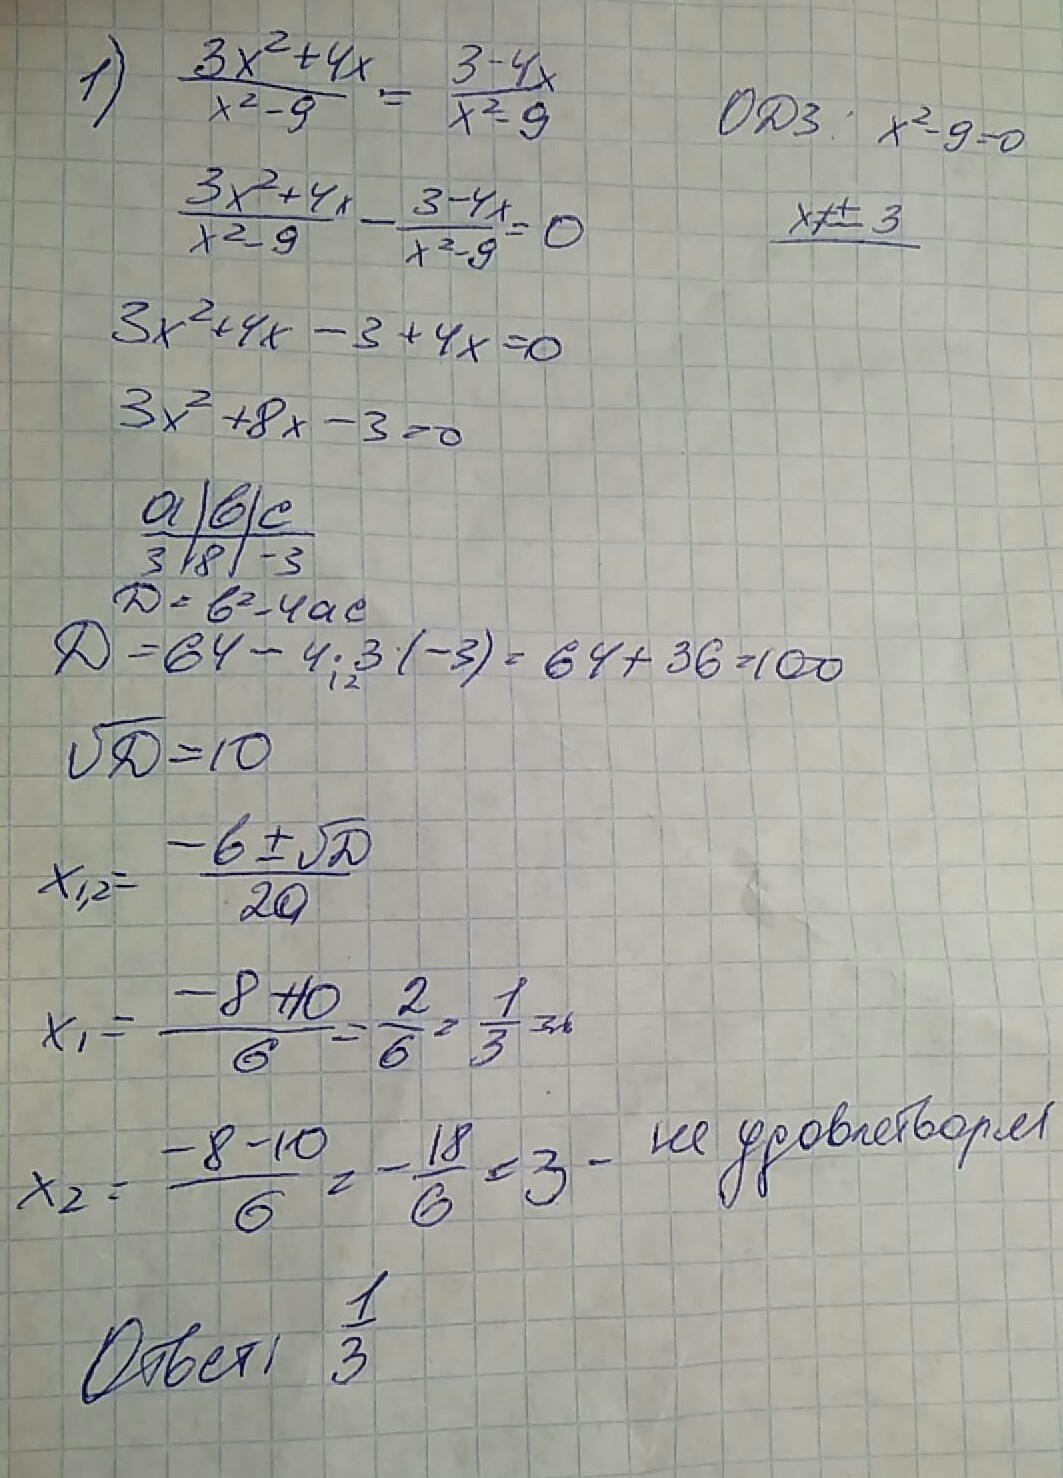 1) (3x²+4x)/(x²-9) = (3-4x)/(x²-9)
ОДЗ: x²-9=0
x≠±3
(3x²+4x)/(x²-9) - (3-4x)/(x²-9) = 0
3x²+4x-3+4x=0
3x²+8x-3=0
a | b | c
3 | 8 | -3
D = b²-4ac
D = 64-4·3·(-3) = 64+36=100
12
√D=10
x₁,₂= (-b±√D)/(2a)
x₁ = (-8+10)/6 = 2/6 = 1/3
x₂ = (-8-10)/6 = -18/6 = 3 - не удовлетворяет
Ответ: 1/3